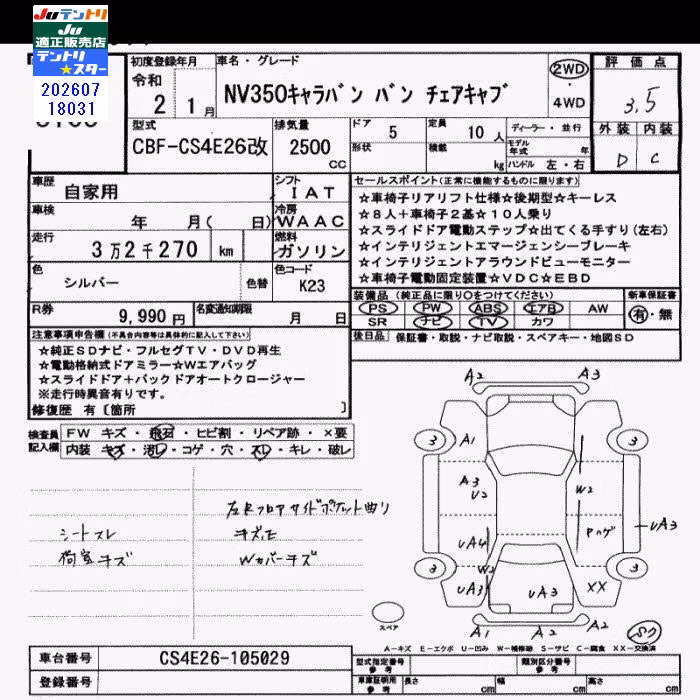 Juテントリ
Ju
適正販売店
テントリ
★スター
202607
18031
初度登録年月
令和
2 1月
車名・グレード
NV350キャラバン バン チェアキャブ
2WD
・
4WD
評価点
3.5
外装 内装
D C
型式
CBF-CS4E26改
排気量
2500
CC
ドア 5
形状
定員 10人
積載 kg
ディーラー・並行
モデル年式 年
ハンドル 左・右
車歴
自家用
シフト
IAT
車検
年 月( 日)
冷房
WAAC
走行
3万2千270 km
燃料
ガソリン
色
シルバー
色替
色コード
K23
R券
9,990円
名変通知期限
月 日
セールスポイント(正常に機能するものに限ります)
☆車椅子リアリフト仕様☆後期型☆キーレス
☆8人+車椅子2基☆10人乗り
☆スライドドア電動ステップ☆出てくる手すり(左右)
☆インテリジェントエマージェンシーブレーキ
☆インテリジェントアラウンドビューモニター
☆車椅子電動固定装置☆VDC☆EBD
装備品(純正品に限り○をつけてください)
PS PW ABS エアB AW
SR ナビ TV カワ
新車保証書
有・無
後日品 保証書・取説・ナビ取説・スペアキー・地図SD
注意事項申告欄(不具合内容等は具体的に記入して下さい)
☆純正SDナビ・フルセグTV・DVD再生
☆電動格納式ドアミラー☆Wエアバッグ
☆スライドドア+バックドアオートクロージャー
※走行時異音有りです。
修復歴 有〔箇所 〕
検査員記入欄
FW キズ・飛石・ヒビ割・リペア跡・×要
内装 キズ・汚レ・コゲ・穴・スレ・キレ・破レ
左Rフロアサイドポケット曲り
シートスレ キズ大
荷室キズ Wカバーキズ
A2 A3
3 A1 3
A3
U2 W2
UA4 Pハゲ UA3
3 W2 3
UA3 UA3 XX
A1 A2 A2
スペア
A−キズ E−エクボ U−凹み W−補修跡 S−サビ C−腐食 XX−交換済
車台番号 CS4E26-105029
登録番号
型式指定番号
参考
類別区分番号
参考
車庫証明用
参考
長さ cm 幅 cm 高さ cm